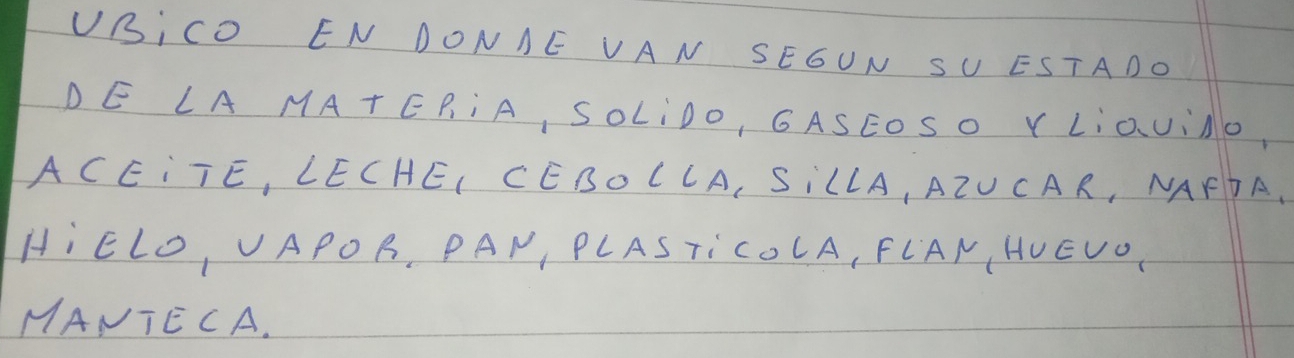 UBiCO EN DONDE VAN SEGUN SU ESTADO
DE LA MATERiA, SOLiDO, GASEOSO Y LiQUiDO,
ACEiTE, LECHE, CEBOLLA, SiLLA, AZUCAR, NAFTA,
HiELO, VAPOR, PAN, PLASTiCOLA, FLAN, HUEVO,
MANTECA.